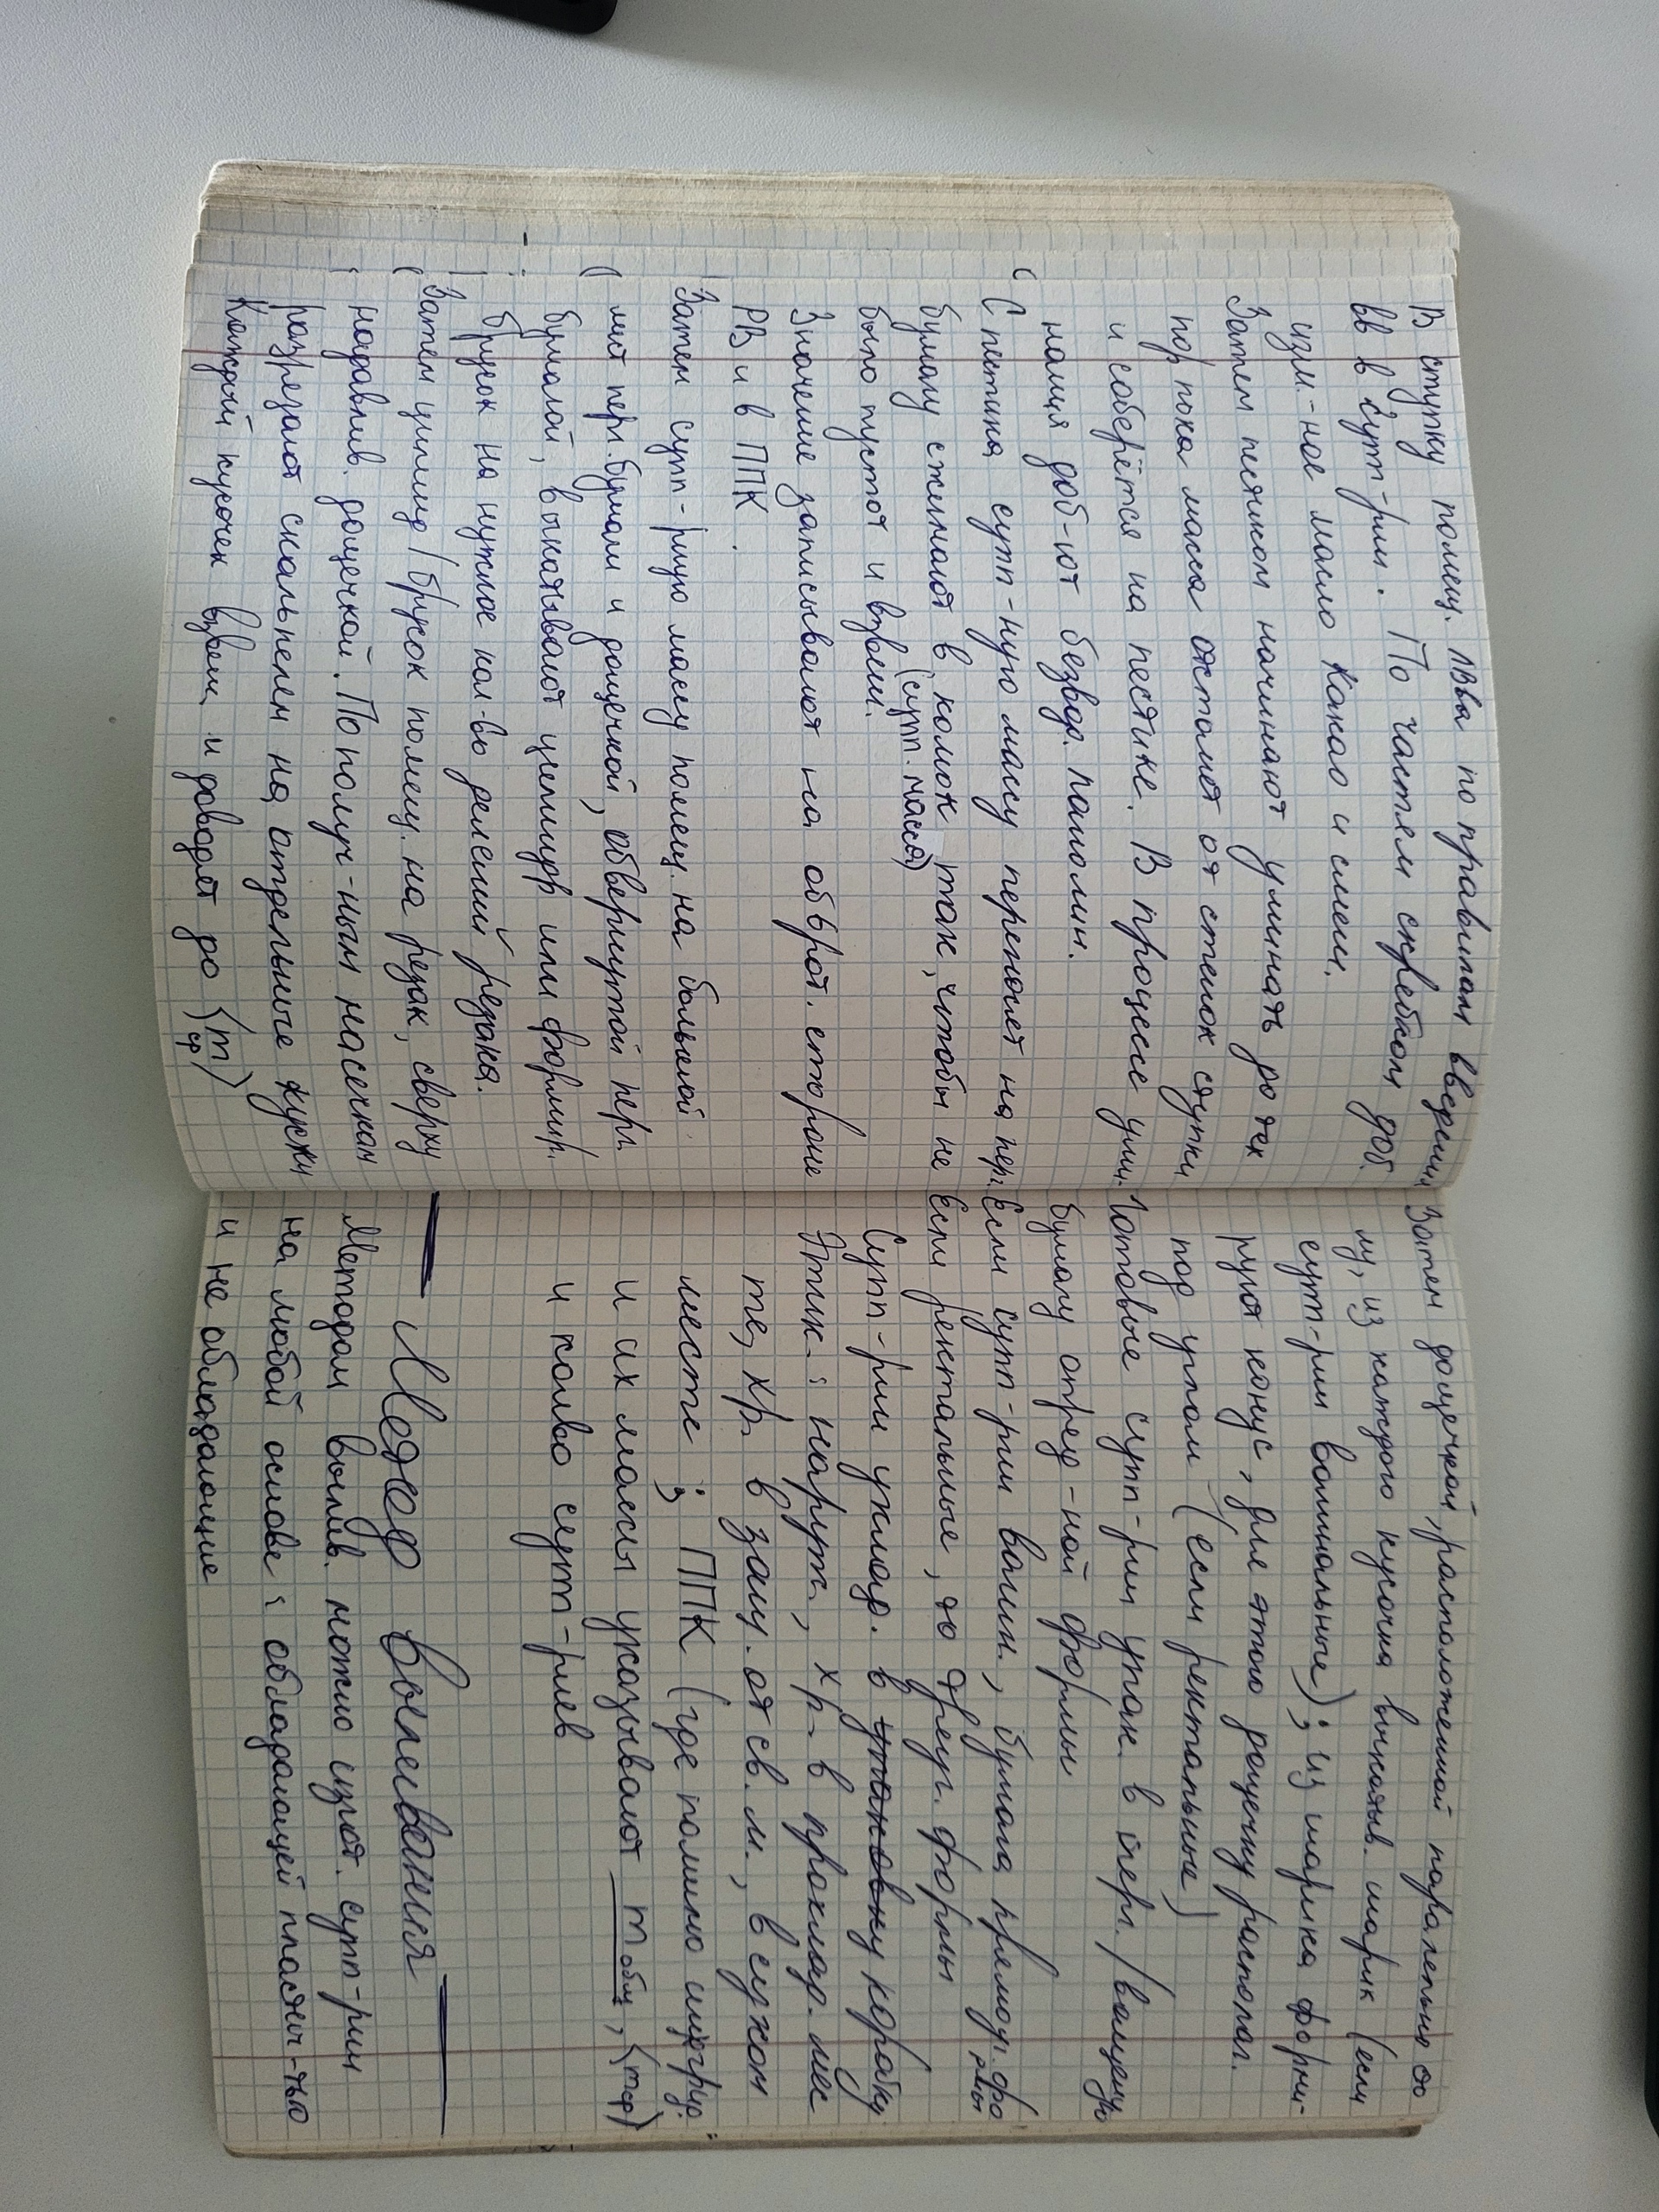 В ступку помещ. ЛВва по правилам введения
вв в супп-рии. По частям скребком доб.
изм.-ное масло какао и смеш.
Затем пестиком начинают уминать до тех
пор пока масса отстанет от стенок ступки
и соберётся на пестике. В процессе уми-
нания доб-ют безвод. ланолин.
С пестика супп-ную массу переносят на пер.
бумагу сжимают в комок так, чтобы не
(супп. масса)
было пустот и взвеш.
Значение записывают на оборот. стороне
РВ и в ППК.
Затем супп-рную массу помещ. на большой
лист перг. бумаги и дощечкой, обвернутой перг.
бумагой, выкатывают цилиндр или формир.
брусок на нужное кол-во делений резака.
Затем цилинд/брусок помещ. на резак, сверху
надавлив. дощечкой. По получ-ным насечкам
разрезают скальпелем на отдельные куски
Каждый кусочек взвеш. и доводят до (m ср)
Затем дощечкой, расположенной паралельно сто
лу, из каждого кусочка выкатыв. шарик (если
супп-рии вагинальные); из шарика форми-
руют конус, для этого дощечку располаг.
под углом (если ректальные)
Готовые супп-рии упак. в перг./вощеную
бумагу опред-ной формы
Если супп-рии вагин., бумага прямоуг. фо
рмы
Если ректальные, то треуг. формы
Супп-рии уклад. в упаковку коробку
Этик.: наруж., хр. в прохлад. мес
те, хр. в защ. от св. м., в сухом
месте; ППК (где помимо ингрид.
и их массы указывают m общ, (m ср)
и колво супп-риев
Метод выливания
Методом вылив. можно изгот. супп-рии
на любой основе: обладающей пластич-тью
и не обладающие